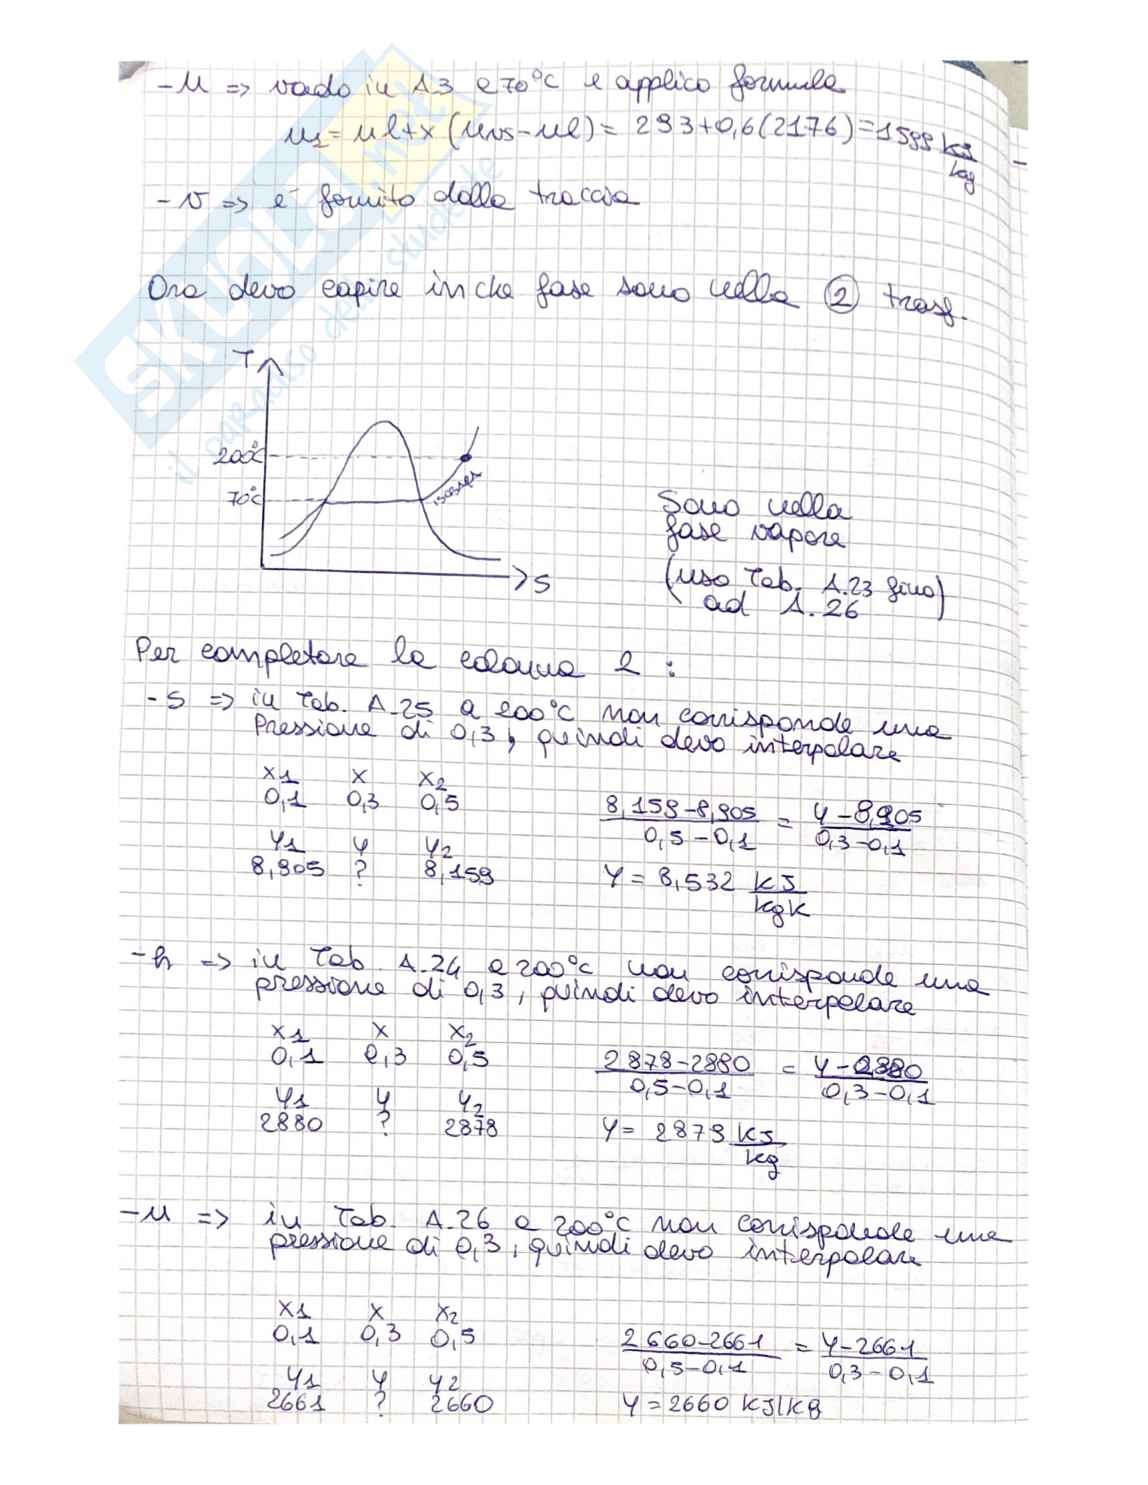 - u => vado in A3 a 70°C e applico formula
u1 = ul + x (uvs - ul) = 293 + 0,6 (2176) = 1599 kJ/kg
- v => è fornito dalla traccia
Ora devo capire in che fase sono nella ② trasf.
T
200°C
70°C
isobara
S
Sono nella
fase vapore
(uso Tab. A.23 fino)
ad A.26
Per completare la colonna 2 :
- s => in Tab. A.25 a 200°C non corrisponde una
Pressione di 0,3, quindi devo interpolare
x1 x x2
0,1 0,3 0,5
y1 y y2
8,905 ? 8,159
8,159-8,905 / 0,5-0,1 = y-8,905 / 0,3-0,1
y = 8,532 kJ/kgK
- h => in Tab. A.24 a 200°C non corrisponde una
pressione di 0,3, quindi devo interpolare
x1 x x2
0,1 0,3 0,5
y1 y y2
2880 ? 2878
2878-2880 / 0,5-0,1 = y-2880 / 0,3-0,1
y = 2879 kJ/kg
- u => in Tab. A.26 a 200°C non corrisponde una
pressione di 0,3, quindi devo interpolare
x1 x x2
0,1 0,3 0,5
y1 y y2
2661 ? 2660
2660-2661 / 0,5-0,1 = y-2661 / 0,3-0,1
y = 2660 kJ/kg
SKUOLA.net
il paradiso dello studente